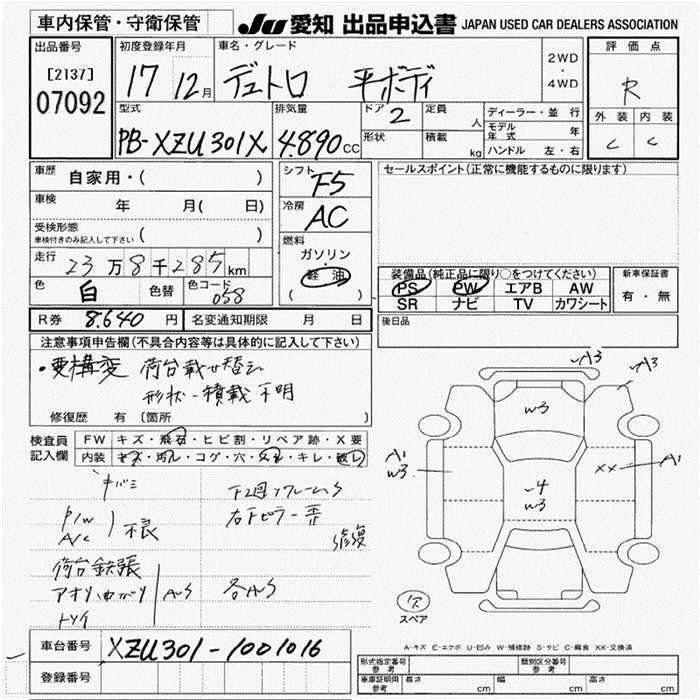 車内保管・守衛保管
JU 愛知 出品申込書 JAPAN USED CAR DEALERS ASSOCIATION
出品番号
[2137]
07092
初度登録年月
17 12月
車名・グレード
デュトロ 平ボデイ
2WD
・
4WD
評価点
R
外装 内装
C C
型式
PB-XZU301X
排気量
4.890cc
ドア 2
定員 人
形状
積載 kg
ディーラー・並行
モデル年式 年
ハンドル 左・右
車歴
自家用・( )
車検
年 月( 日)
受検形態
車検付きのみ記入して下さい ( )
走行
23万8千285km
色
白
色替
色コード
058
シフト
F5
冷房
AC
燃料
ガソリン
・
軽油
( )
セールスポイント(正常に機能するものに限ります)
装備品(純正品に限り○をつけてください)
PS PW エアB AW
SR ナビ TV カワシート
新車保証書
有・無
R券 8.640円
名変通知期限 月 日
後日品
注意事項申告欄(不具合内容等は具体的に記入して下さい)
・要構変 荷台載せ替え
形状・積載不明
修復歴 有〔箇所 〕
検査員記入欄
FW キズ・飛石・ヒビ割・リペア跡・X要
内装 キズ・汚れ・コゲ・穴・スレ・キレ・破レ
キバミ
P/W
A/C
不良
下廻フレームS
右下ピラー歪
修復
荷台鉄張
アオリ曲がり
トリイ
AS
各AS
A3
A3
W3
A1
W3
XX
A1
-4
W3
欠
スペア
A-キズ E-エクボ U-凹み W-補修跡 S-サビ C-腐食 XX-交換済
車台番号 XZU301-1001016
登録番号
形式指定番号 参考
類別区分番号 参考
車庫証明用 参考
長さ cm
幅 cm
高さ cm